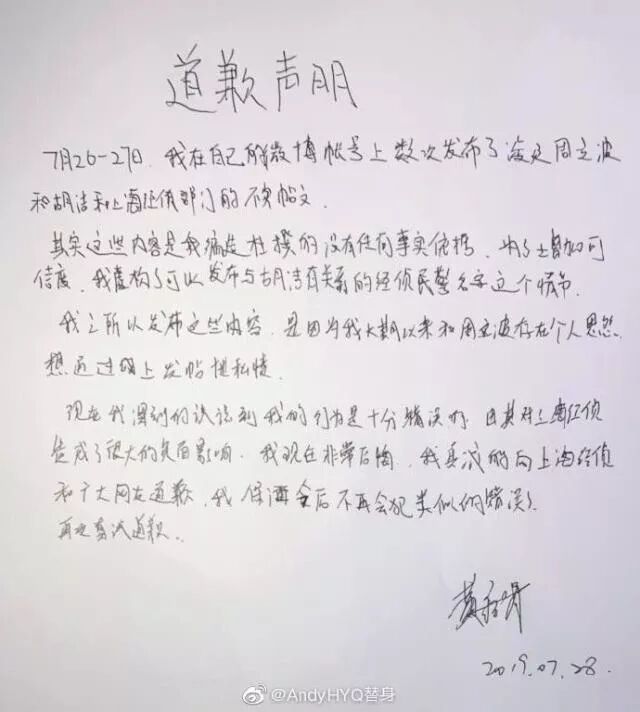 道歉声明
7月26-27日,我在自己的微博帐号上数次发布了涉及周立波
和胡洁和上海经侦部门的不实帖文。
其实这些内容是我编造杜撰的没有任何事实依据,为了增加可
信度,我虚构了可以发布与胡洁有关系的经侦民警名字这个情节。
我之所以发布这些内容,是因为我长期以来和周立波存在个人恩怨
想通过网上发帖泄私愤。
现在我深刻的认识到我的行为是十分错误的,因其对上海经侦
造成了很大的负面影响。我现在非常后悔,我真诚的向上海经侦
和广大网友道歉,我保证今后不再会犯类似的错误。
再次真诚道歉。
2019.07.28
@AndyHYQ替身